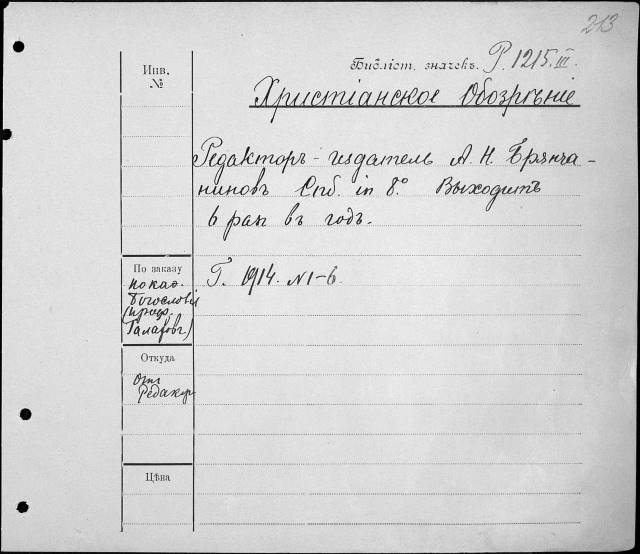 213
Библіот. значекъ Р. 1215. III.
Инв. №
Христіанское Обозрѣніе
Редакторъ-издатель А. Н. Брянча-
ниновъ Спб. in 8.° Выходитъ
6 разъ въ годъ.
По заказу
по каѳ.
Богословія
(проф.
Галахов)
Г. 1914. №1-6
Откуда
Отъ
Редакціи
Цѣна